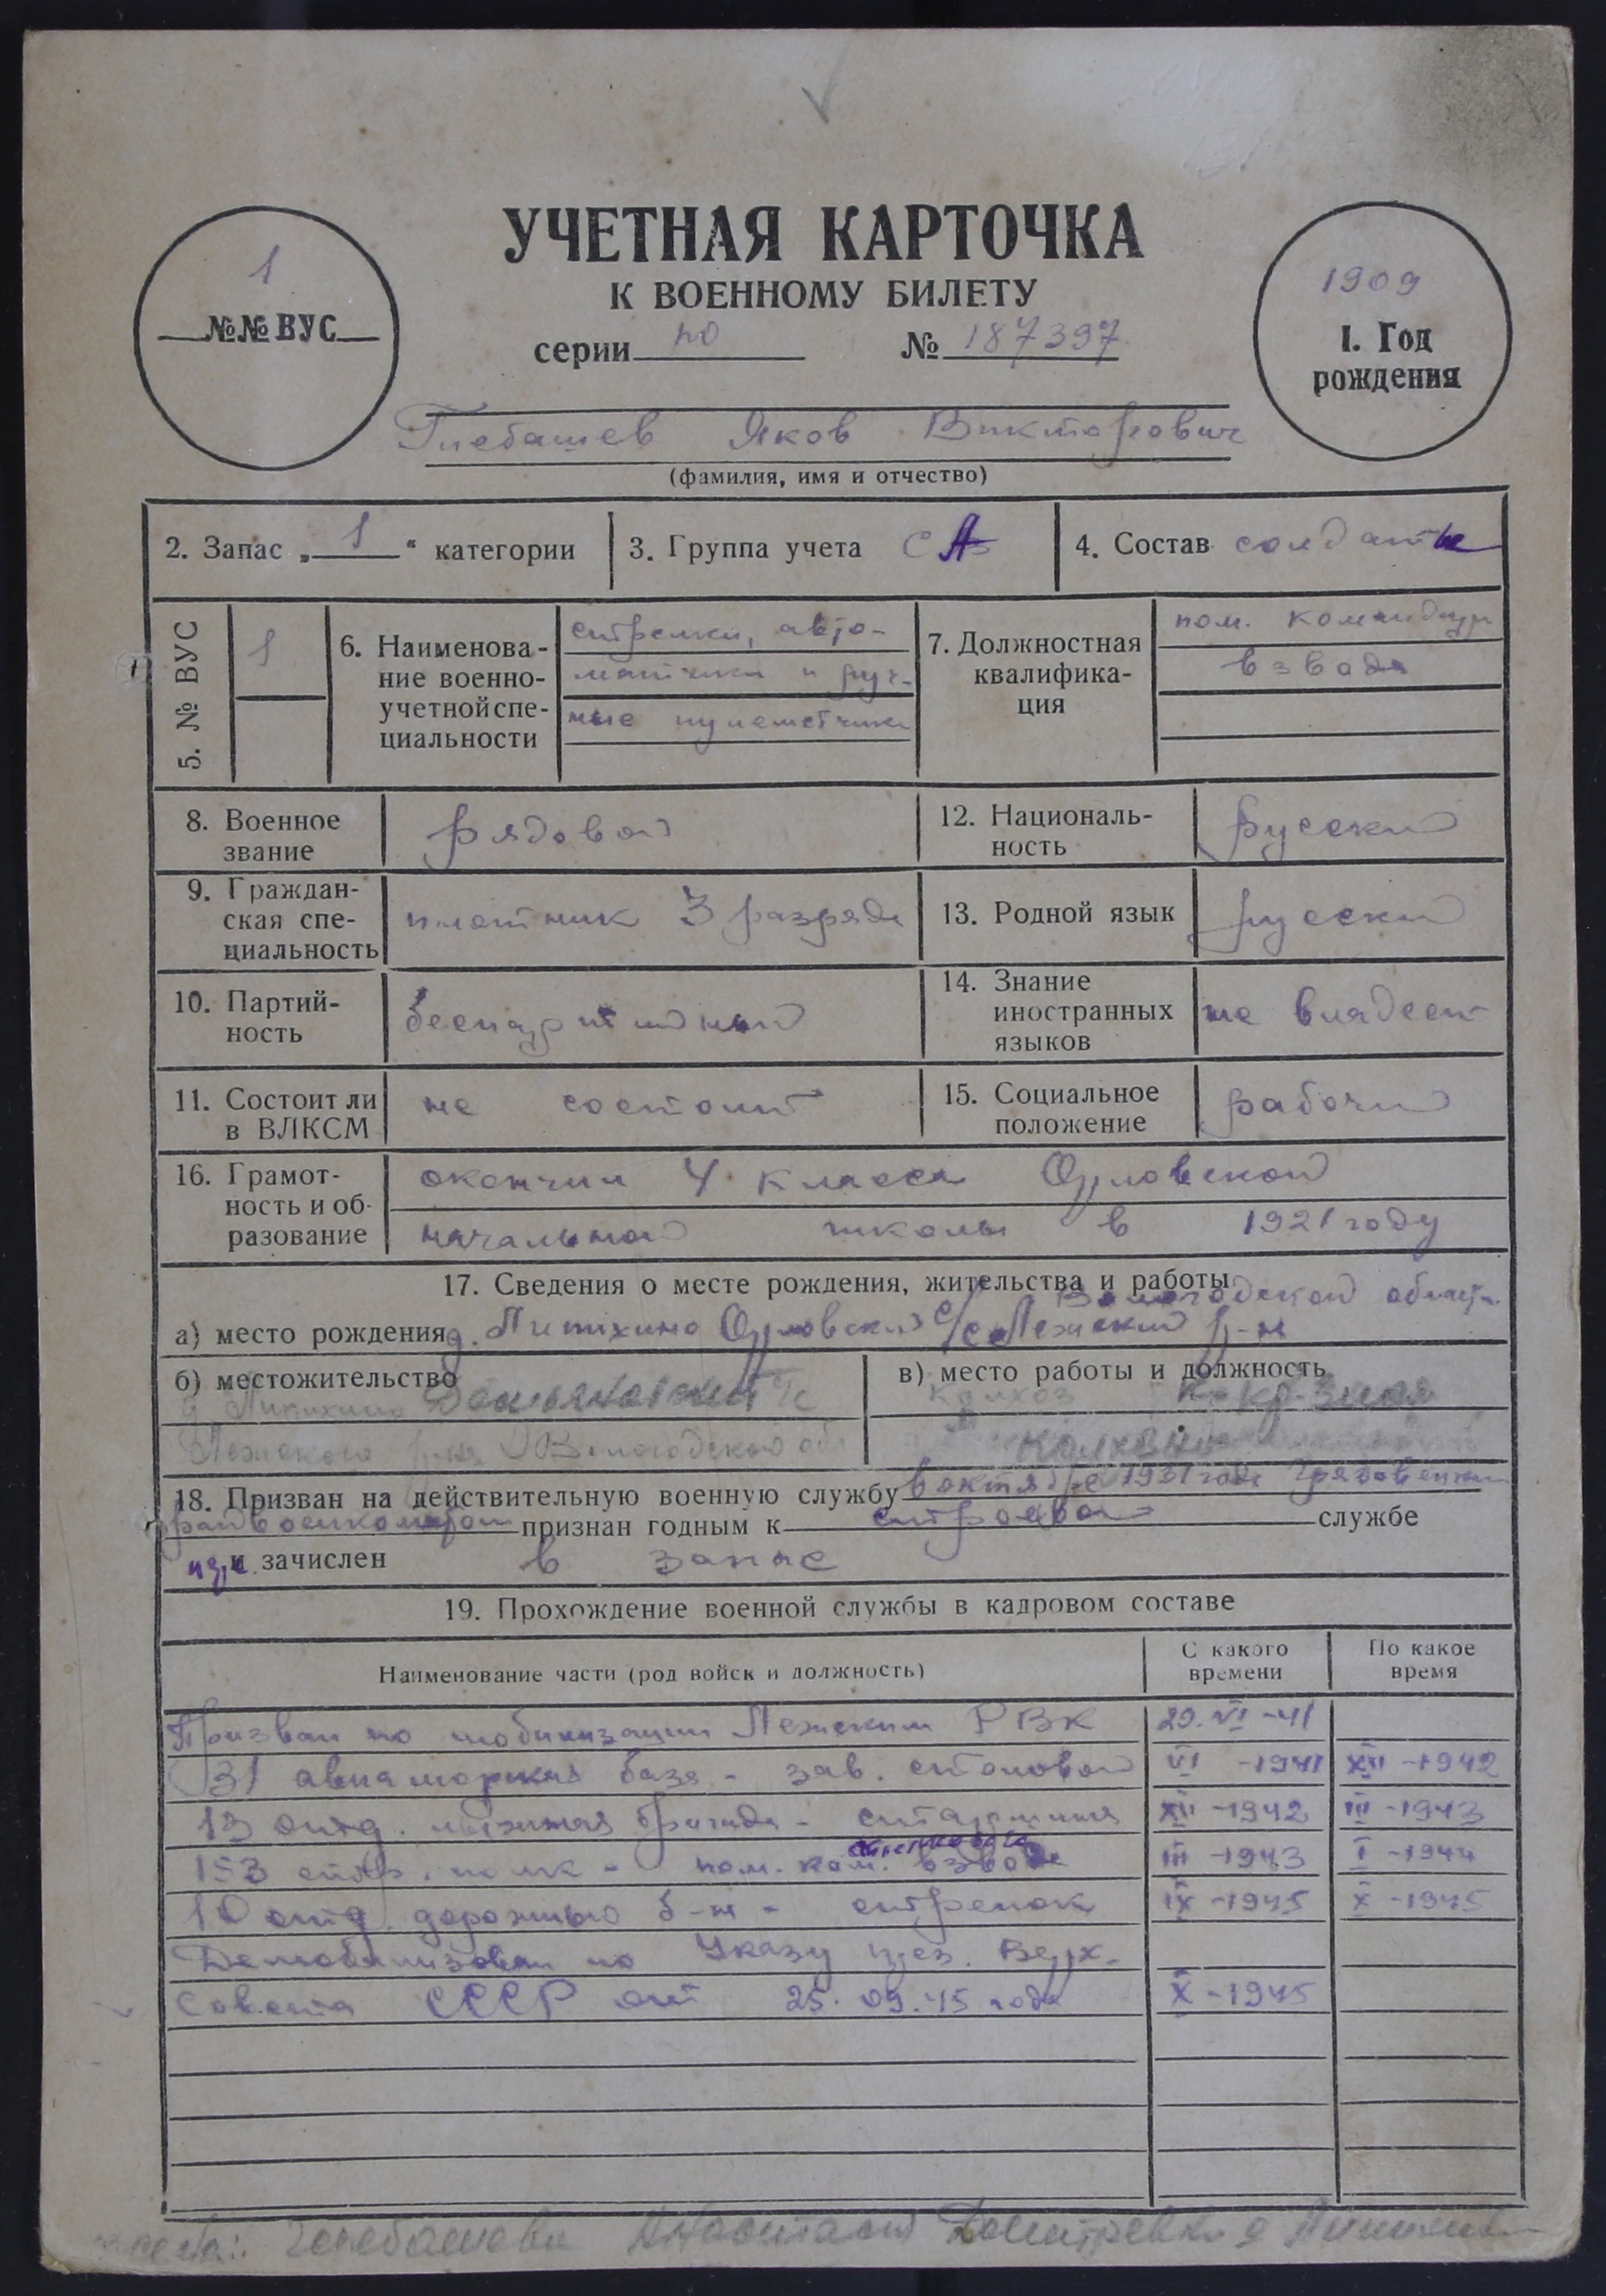 1
№№ ВУС
УЧЕТНАЯ КАРТОЧКА
К ВОЕННОМУ БИЛЕТУ
серии по № 187397
1909
1. Год
рождения
Глебашев Яков Викторович
(фамилия, имя и отчество)
2. Запас „ 1 “ категории
3. Группа учета СА
4. Состав солдаты
5. № ВУС
1
6. Наименова-
ние военно-
учетной спе-
циальности
стрелки, авто-
матчики и руч-
ные пулеметчики
7. Должностная
квалифика-
ция
пом. командира
взвода
8. Военное
звание
рядовой
12. Националь-
ность
русский
9. Граждан-
ская спе-
циальность
плотник 3 разряда
13. Родной язык
русский
10. Партий-
ность
беспартийный
14. Знание
иностранных
языков
не владеет
11. Состоит ли
в ВЛКСМ
не состоит
15. Социальное
положение
рабочий
16. Грамот-
ность и об-
разование
окончил 4 класса Орловской
начальной школы в 1921 году
17. Сведения о месте рождения, жительства и работы
Вологодской области
а) место рождения д. Пипихино Орловский с/с Лежский р-н
б) местожительство
Лежского р-на Вологодской обл
в) место работы и должность
колхоз
18. Призван на действительную военную службу в октябре 1931 года Грязовецким
райвоенкоматом признан годным к строевой службе
и зачислен в запас
19. Прохождение военной службы в кадровом составе
Наименование части (род войск и должность)
С какого
времени
По какое
время
Призван по мобилизации Лежским РВК 29. VI -41
31 авиаморская база - зав. столовой VI -1941 XII -1942
13 отд. лыжная бригада - старшина XII -1942 III -1943
стрелкового
153 стр. полк - пом. ком. взвода III -1943 I -1944
10 отд. дорожный б-н - стрелок IX -1945 X -1945
Демобилизован по Указу през. Верх.
Совета СССР от 25.09.45 года X -1945